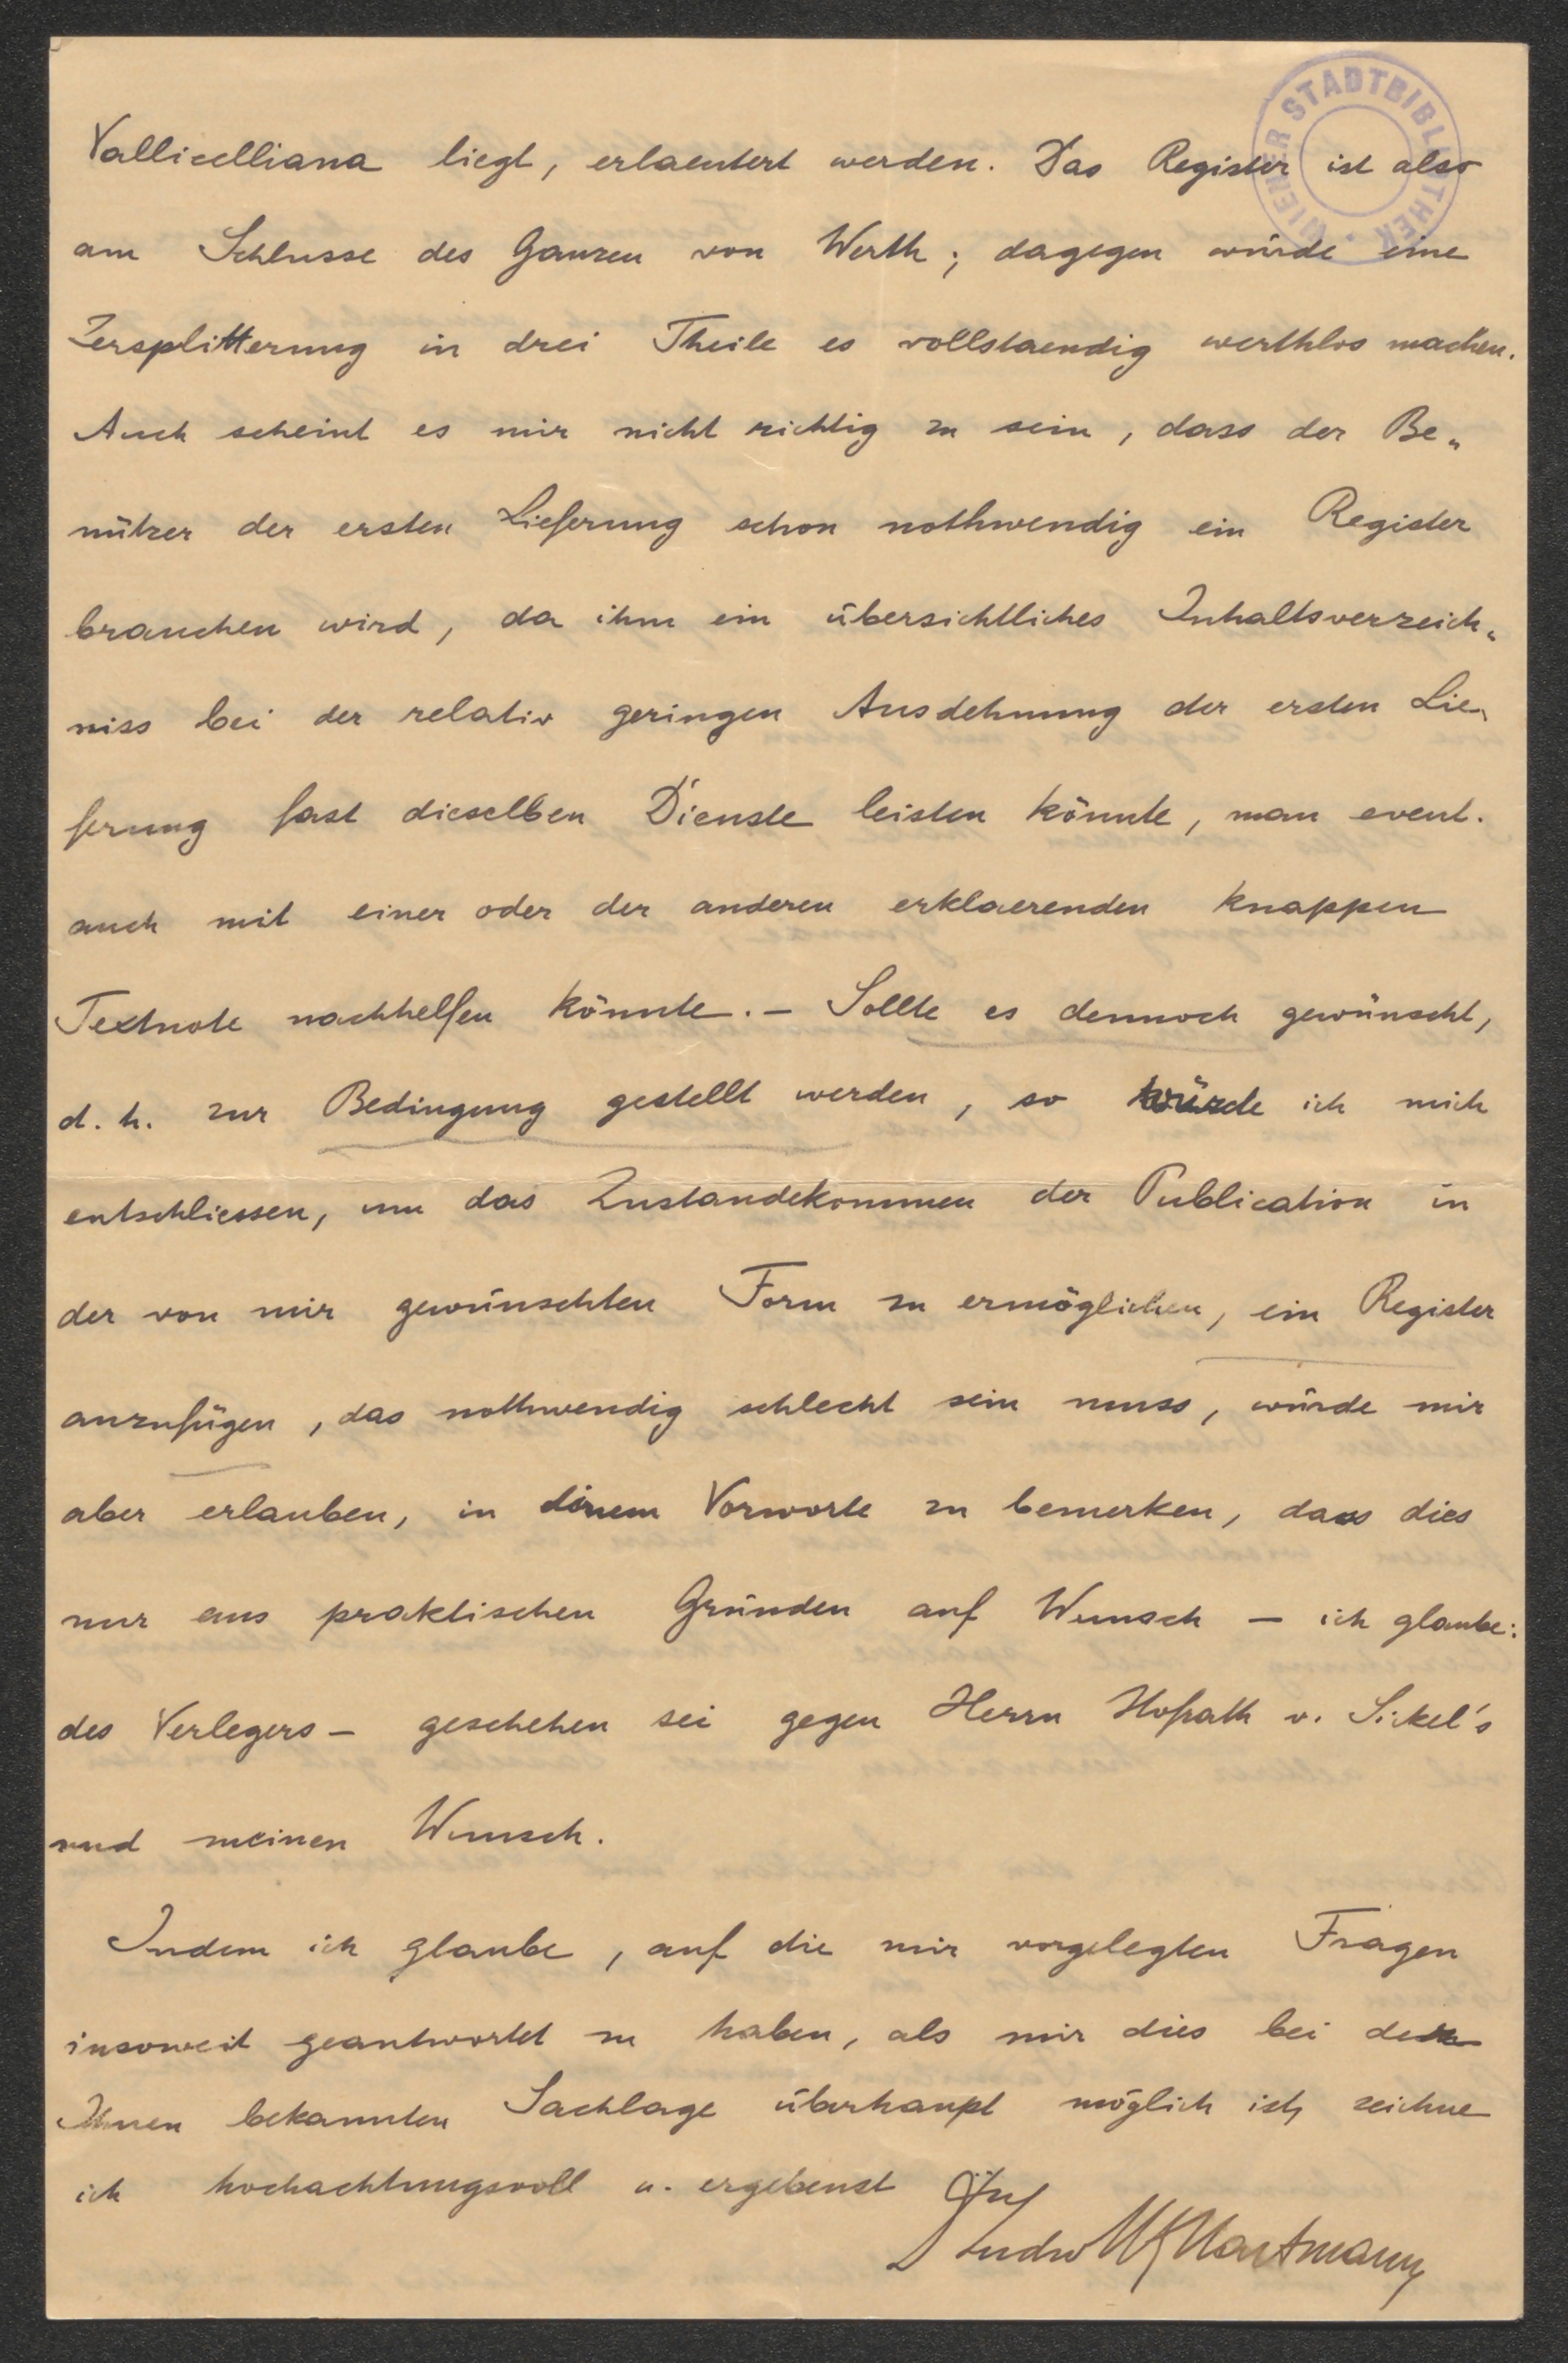 WIENER STADTBIBLIOTHEK
Vallicelliana liegt, erlaeutert werden. Das Register ist also
am Schlusse des Ganzen von Werth; dagegen würde eine
Zersplitterung in drei Theile es vollstaendig werthlos machen.
Auch scheint es mir nicht richtig zu sein, dass der Be„
nützer der ersten Lieferung schon nothwendig ein Register
brauchen wird, da ihm ein übersichtliches Inhaltsverzeich„
niss bei der relativ geringen Ausdehnung der ersten Lie„
ferung fast dieselben Dienste leisten könnte, man event.
auch mit einer oder der anderen erklaerenden knappen
Textnote nachhelfen könnte. – Sollte es dennoch gewünscht,
d. h. zur Bedingung gestellt werden, so würde ich mich
entschliessen, um das Zustandekommen der Publication in
der von mir gewünschten Form zu ermöglichen, ein Register
anzufügen, das nothwendig schlecht sein muss, würde mir
aber erlauben, in einem Vorworte zu bemerken, dass dies
nur aus praktischen Gründen auf Wunsch – ich glaube:
des Verlegers – geschehen sei gegen Herrn Hofrath v. Sickel's
und meinen Wunsch.
Indem ich glaube, auf die mir vorgelegten Fragen
insoweit geantwortet zu haben, als mir dies bei der
Ihnen bekannten Sachlage überhaupt möglich ist, zeichne
ich hochachtungsvoll u. ergebenst
Ludo M Hartmann